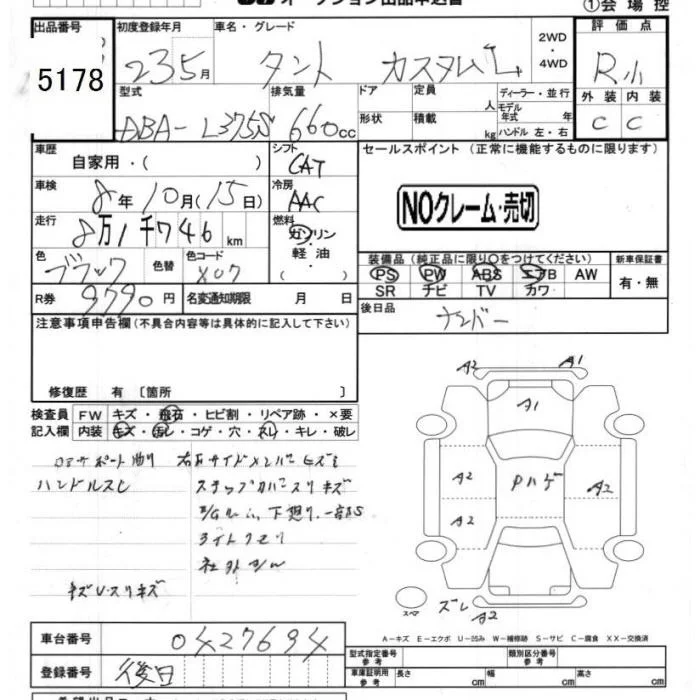 オークション出品申込書
①会場控
出品番号
5178
初度登録年月
23 5月
車名・グレード
タント カスタムL
2WD・4WD
評価点
R
型式
DBA-L375S
排気量
660cc
ドア
形状
定員
人
積載
kg
ディーラー・並行
モデル年式 年
ハンドル 左・右
外装
C
内装
C
車歴
自家用・( )
シフト
CAT
セールスポイント (正常に機能するものに限ります)
車検
8年10月(15日)
冷房
AAC
NOクレーム・売切
走行
8万1千746km
燃料
ガソリン・軽油・( )
色
ブラック
色替
色コード
X07
装備品 (純正品に限り○をつけてください)
PS PW ABS エアB AW
SR ナビ TV カワ
新車保証書
有・無
R券
9790円
名変通知期限 月 日
後日品
ナンバー
注意事項申告欄(不具合内容等は具体的に記入して下さい)
修復歴 有〔箇所 〕
検査員記入欄
FW キズ・飛石・ヒビ割・リペア跡・×要
内装 キズ・汚レ・コゲ・穴・スレ・キレ・破レ
ハンドルスレ
ステップカバースリキズ
ライトクモリ
キズ・スリキズ
A2 A1
A1
A2
Pハゲ
A2
A2
スペア
ズレ
A2
A-キズ E-エクボ U-凹み W-補修跡 S-サビ C-腐食 XX-交換済
車台番号
0427694
型式指定番号 参考
類別区分番号 参考
登録番号
後日
車庫証明用 参考
長さ cm
幅 cm
高さ cm